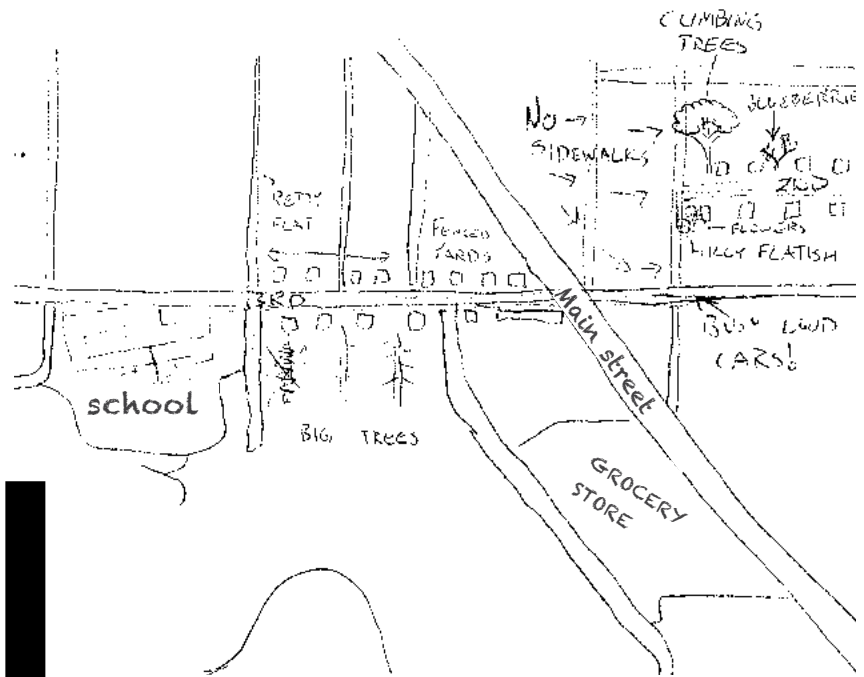 CLIMBING
TREES
BLUEBERRIE
No
SIDEWALKS
2ND
FLOWERS
FLATISH
PETTY
FLAT
FENCED
YARDS
3RD
Main street
LOUD
CARS!
school
BIG TREES
GROCERY
STORE